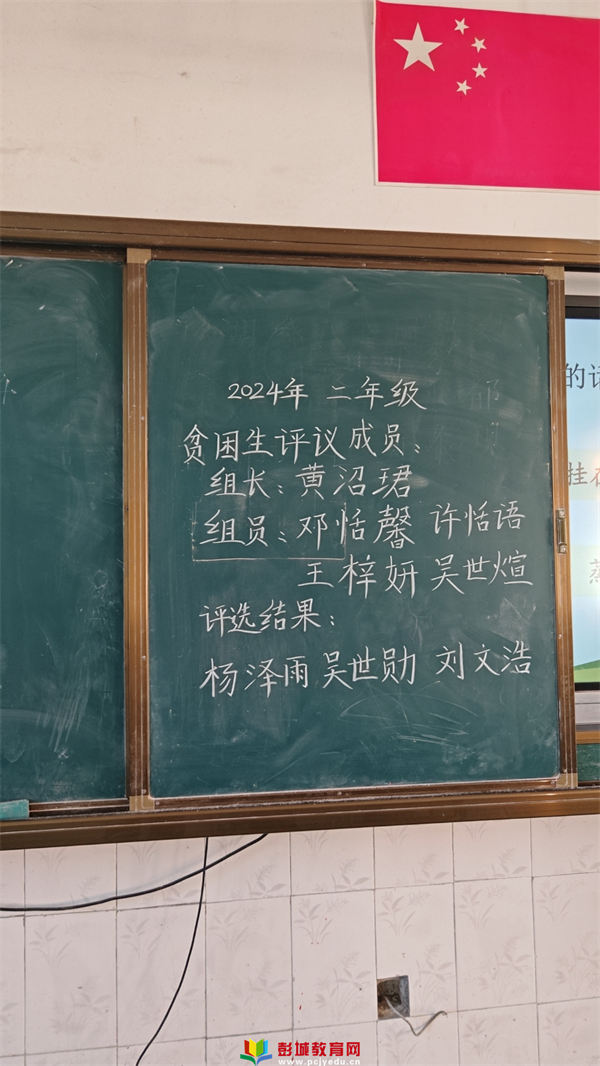 2024年 二年级
贫困生评议成员:
组长:黄沼珺
组员:邓恬馨 许恬语
王梓妍 吴世煊
评选结果:
杨泽雨 吴世勋 刘文浩
的
挂在
蒸
彭城教育网
www.pcjyedu.cn